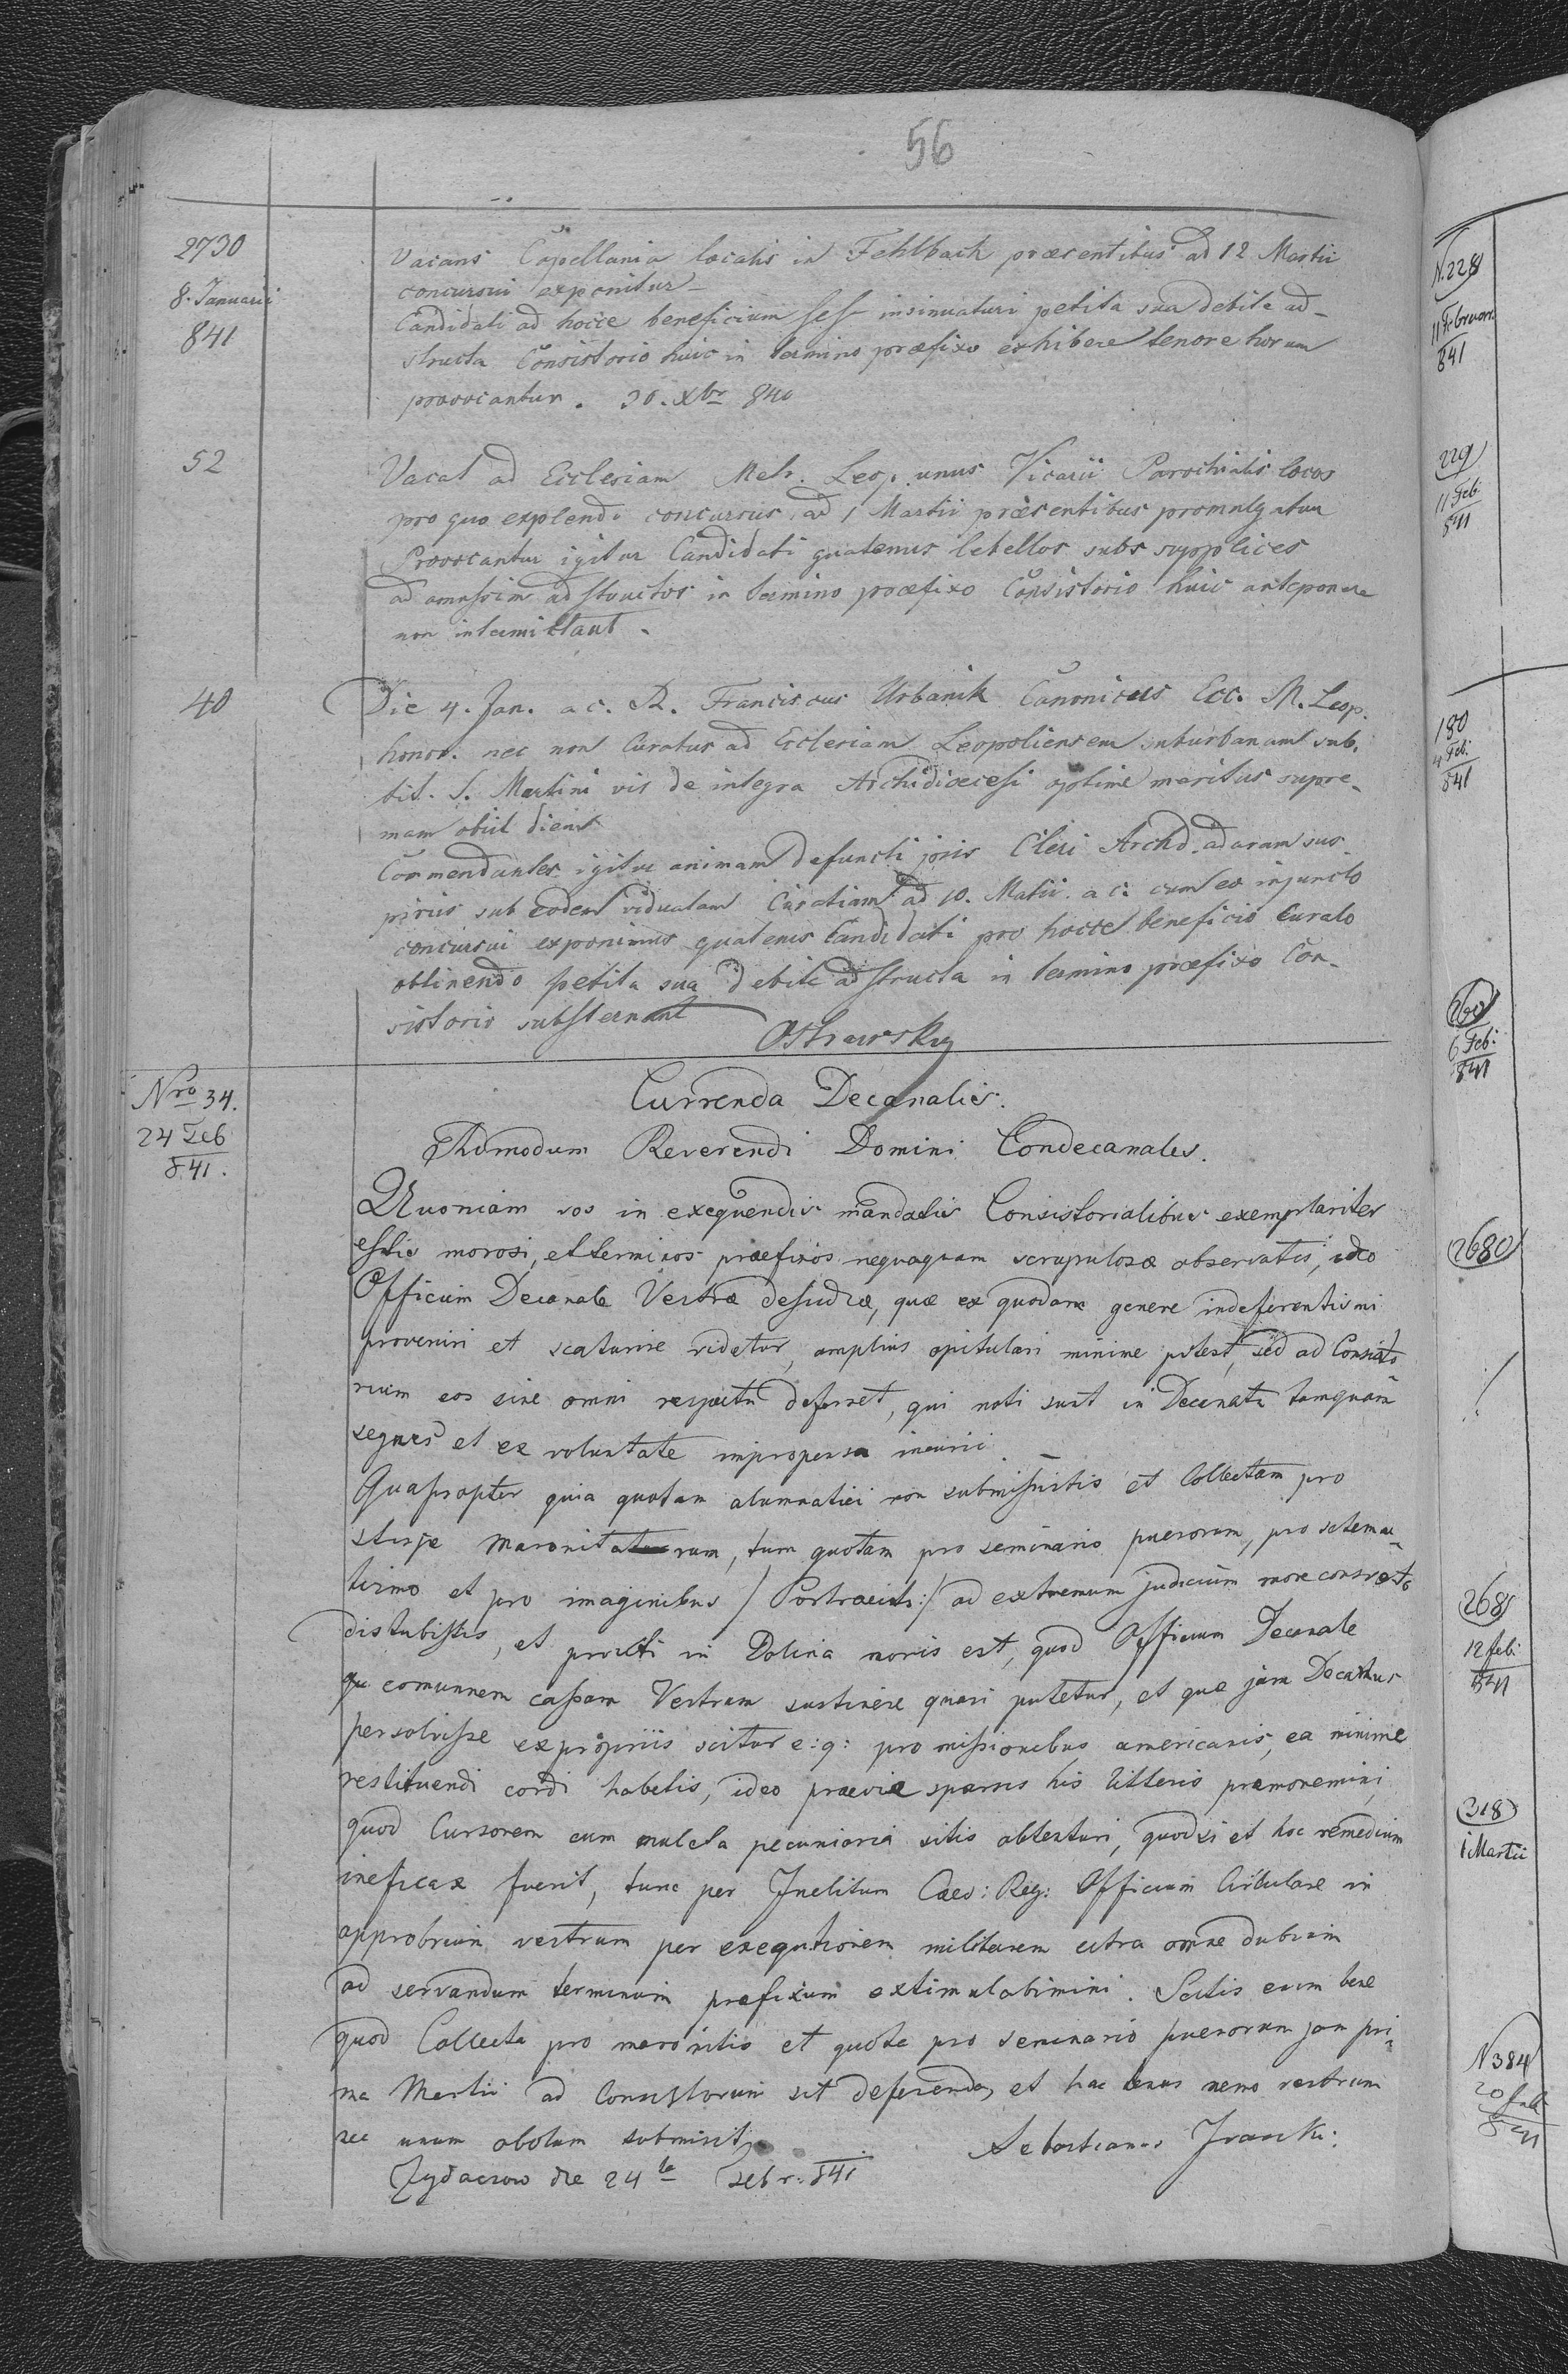 56
2730
8. Januarii
841
Vacans Capellania localis in Fehlbach præsentibus ad 12 Martii
concursui exponitur
Candidati ad hocce beneficium sese insinuaturi petita sua debite ad-
structa Consistorio huic in termino præfixo exhibere tenore horum
provocantur. 30. Xbr 840
52
Vacat ad Ecclesiam Metr. Leop. unus Vicarii Parochialis locus
pro quo explendo concursus ad 1 Martii præsentibus promulgatur
Provocantur igitur Candidati quatenus libellos suos supplices
ad amussim adstructos in termino præfixo Consistorio huic anteponere
non intermittant.
40
Die 4. Jan. a c. R. Franciscus Urbanik Canonicus Ecc. M. Leop.
honor. nec non Curatus ad Ecclesiam Leopoliensem suburbanam sub.
tit. S. Martini vir de integra Archidioecesi optime meritus supre-
mam obiit diem
Commendantes igitur animam defuncti piis Cleri Archd. ad aram sus-
piriis sub eodem viduatam Curatiam ad 10. Martii a c. cum eo injuncto
concursui exponimus quatenus Candidati pro hocce beneficio Curato
obtinendo petita sua debite adstructa in termino præfixo Con-
sistorio substernant
Ostrawsky
Nro 34.
24 Feb
841.
Currenda Decanalis.
Admodum Reverendi Domini Condecanales.
Quoniam vos in exequendis mandatis Consistorialibus exemplariter
estis morosi, et terminos praefixos nequaquam scrupulose observatis, ideo
Officium Decanale Vestræ desidiæ, quæ ex quodam genere indeferentismi
proveniri et scaturire videtur, amplius opitulari minime potest, sed ad Consisto
rium eos sine omni respectu deferret, qui noti sunt in Decanatu tamquam
segnes et ex voluntate impropensa incurii
Quapropter quia quotam alumnatici non submisistis et Collectam pro
stirpe Maronitarum, tum quotam pro seminario puerorum, pro schema-
tismo et pro imaginibus /: Portraeits :/ ad extremum judicium more consveto
distulistis, et prouti in Dolina moris est, quod Officium Decanale
qu comunnem cassam Vestram sustinere quasi putetur, et quæ jam Decanus
persolvisse ex propriis scitur e: g: pro missionibus americanis, ea minime
restituendi cordi habetis, ideo praevie sparsis his litteris præmonemini,
quod Cursorem cum mulcta pecuniaria sitis obtenturi, quodsi et hoc remedium
ineficax fuerit, tunc per Inclitum Caes: Reg: Officium Circulare in
opprobrium vestrum per exequtionem militarem citra omne dubium
ad servandum terminum præfixum extimulabimini. Scitis enim bene
quod Collecta pro maronitis et quota pro seminario puerorum jam pri-
ma Martii ad Consistorium sit deferenda, et hac tenus nemo vestrum
nec unum obolum submisit.
Sebastianus
Zydaczow die 24ta Febr: 841
N. 228
11 Februar
841
229
11 Feb.
841
180
4 Feb.
841
260
6 Feb:
841
2680
268
12 feb:
841
318
1 Martii
N 384
20
841